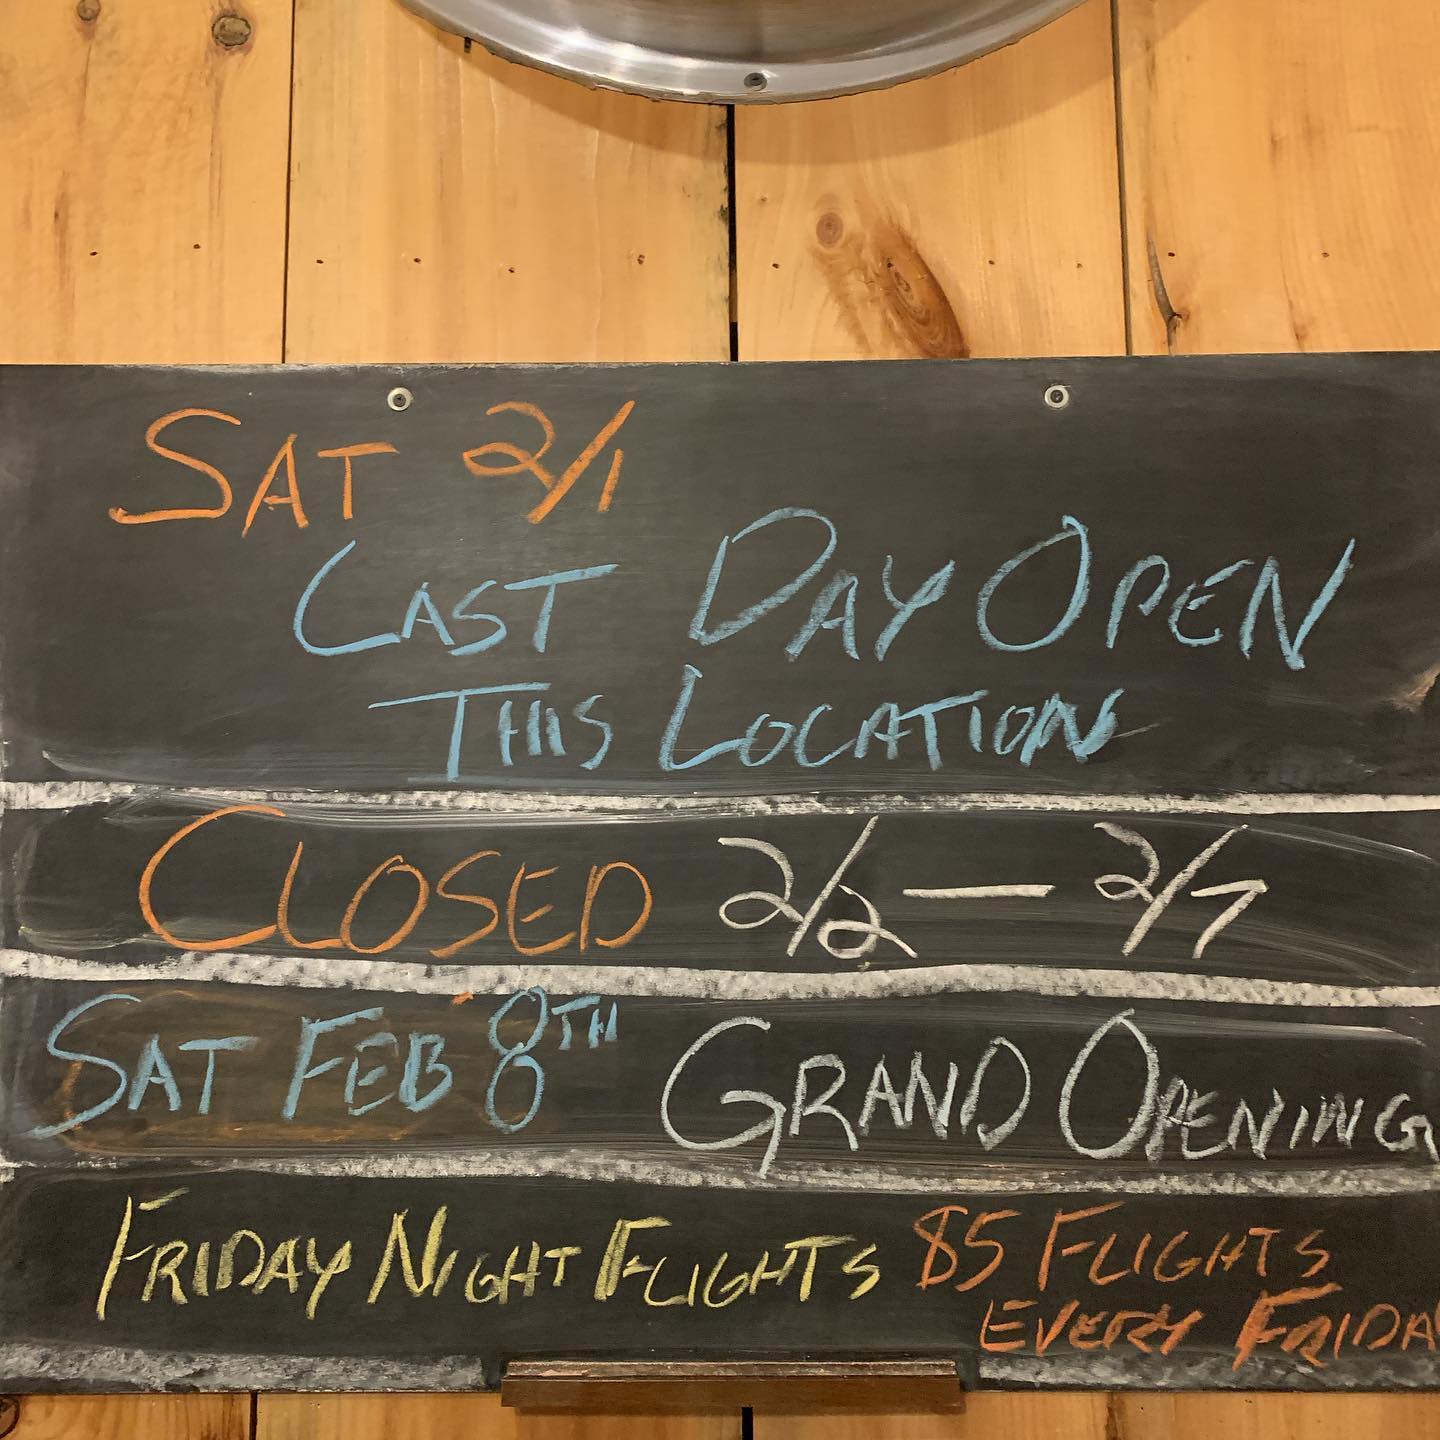 SAT 2/1
LAST DAY OPEN
THIS LOCATION
CLOSED 2/2 — 2/7
SAT FEB 8TH GRAND OPENING
FRIDAY NIGHT FLIGHTS $5 FLIGHTS
EVERY FRIDA